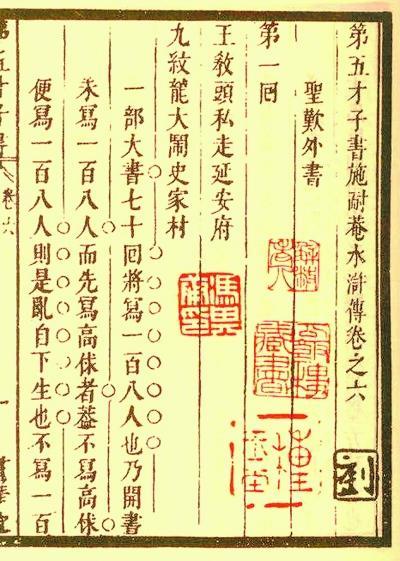 第五才子書施耐菴水滸傳卷之六
聖歎外書
第一囘
王敎頭私走延安府
九紋龍大鬧史家村
一部大書七十囘將寫一百八人也乃開書
未寫一百八人而先寫高俅者葢不寫高俅
便寫一百八人則是亂自下生也不寫一百
第五才子書
卷六
一